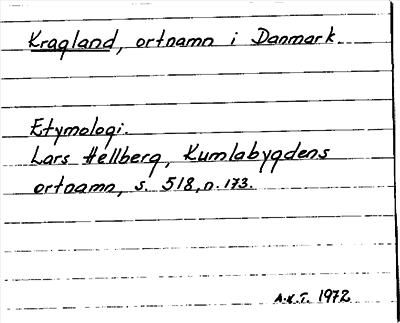 Kragland, ortnamn i Danmark
Etymologi.
Lars Hellberg, Kumlabygdens
ortnamn, s. 518, n. 173.
A.K.T. 1972